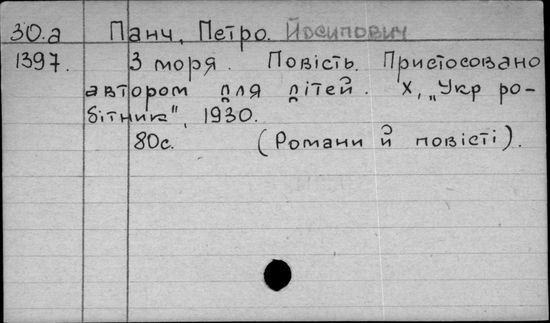 30.а Панч, Петро. Йосипович
1397. З моря. Повість. Пристосовано
автором для дітей. Х, „Укр ро-
бітник", 1930.
80с. (Романи й повісті).